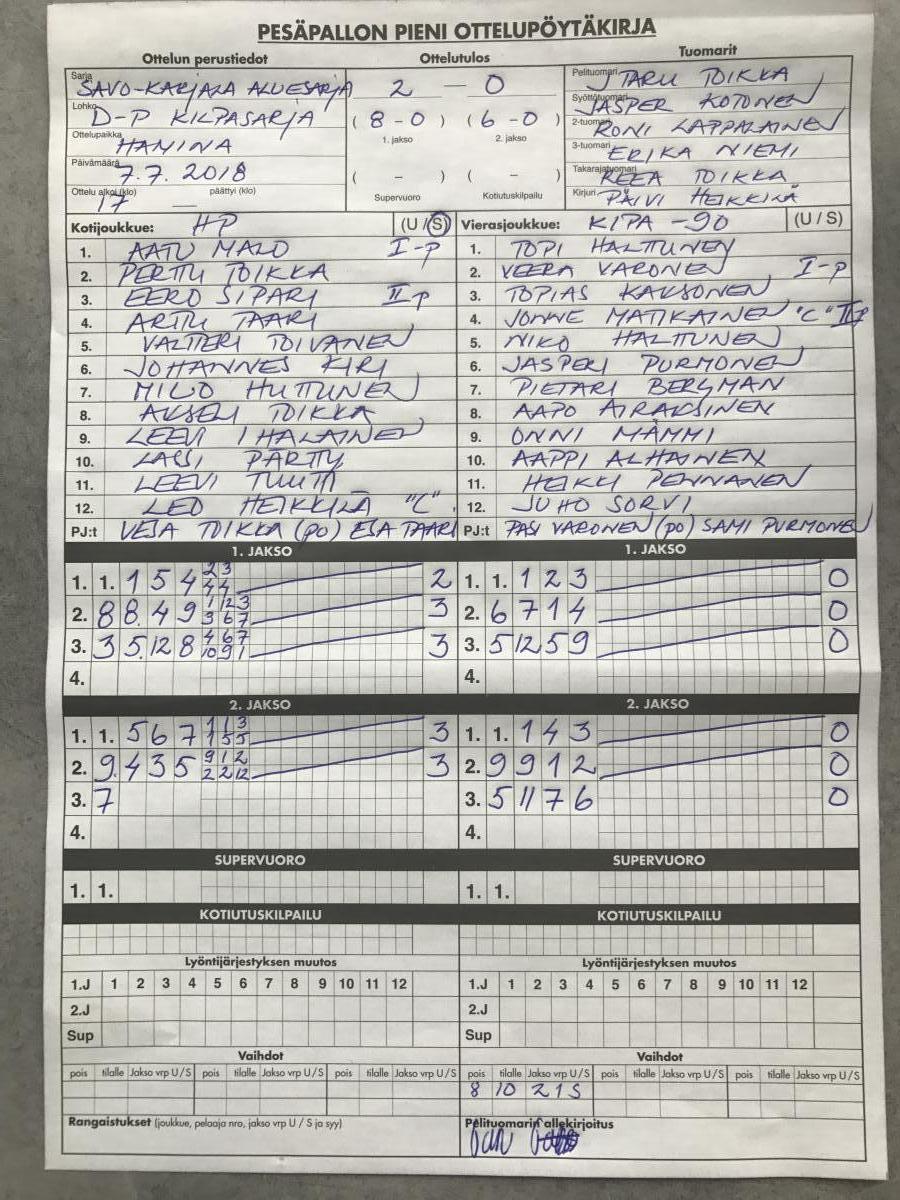 PESÄPALLON PIENI OTTELUPÖYTÄKIRJA
Ottelun perustiedot
Sarja SAVO-KARJALA ALUESARJA
Lohko D-P KILPASARJA
Ottelupaikka HAMINA
Päivämäärä 7.7.2018
Ottelu alkoi (klo) 17 — päättyi (klo)
Ottelutulos
2 — 0
( 8 - 0 ) ( 6 - 0 )
1. jakso 2. jakso
( - ) ( - )
Supervuoro Kotiutuskilpailu
Tuomarit
Pelituomari TARU TOIKKA
Syöttötuomari JASPER KOTONEN
2-tuomari RONI LAPPALAINEN
3-tuomari ERIKA NIEMI
Takarajatuomari REEA TOIKKA
Kirjuri PÄIVI HEIKKILÄ
Kotijoukkue: HP (U / S)
1. AATU MALO I-p
2. PERTTU TOIKKA
3. EERO SIPARI II p
4. ARTTU TAARI
5. VALTTERI TOIVANEN
6. JOHANNES KIRI
7. MILO HUTTUNEN
8. AKSELI TOIKKA
9. LEEVI IHALAINEN
10. LASSI PÄRTTY
11. LEEVI TUUTTI
12. LEO HEIKKILÄ "C"
PJ:t VESA TOIKKA (po) ESA TAARI
Vierasjoukkue: KIPA -90 (U / S)
1. TOPI HALTTUNEN
2. VEERA VARONEN I-p
3. TOPIAS KAKSONEN
4. JONNE MATIKAINEN "C" IIp
5. NIKO HALTTUNEN
6. JASPERI PURMONEN
7. PIETARI BERGMAN
8. AAPO AIRAKSINEN
9. ONNI MÄMMI
10. AAPPI ALHAINEN
11. HEIKKI PENNANEN
12. JUHO SORVI
PJ:t PASI VARONEN (po) SAMI PURMONEN
1. JAKSO
1. 1. 1 5 4 2 3 4 4 2
2. 8 8. 4 9 1 12 3 3 6 7 3
3. 3 5. 12 8 4 6 7 10 9 1 3
4.
1. JAKSO
1. 1. 1 2 3 0
2. 6 7 1 4 0
3. 5 12 5 9 0
4.
2. JAKSO
1. 1. 5 6 7 1 1 3 1 5 5 3
2. 9. 4 3 5 9 1 2 2 2 12 3
3. 7
4.
2. JAKSO
1. 1. 1 4 3 0
2. 9 9 1 2 0
3. 5 11 7 6 0
4.
SUPERVUORO
1. 1.
SUPERVUORO
1. 1.
KOTIUTUSKILPAILU
KOTIUTUSKILPAILU
Lyöntijärjestyksen muutos
1.J 1 2 3 4 5 6 7 8 9 10 11 12
2.J
Sup
Lyöntijärjestyksen muutos
1.J 1 2 3 4 5 6 7 8 9 10 11 12
2.J
Sup
Vaihdot
pois tilalle Jakso vrp U / S pois tilalle Jakso vrp U / S pois tilalle Jakso vrp U / S
Vaihdot
pois tilalle Jakso vrp U / S pois tilalle Jakso vrp U / S pois tilalle Jakso vrp U / S
8 10 2 1 S
Rangaistukset (joukkue, pelaaja nro, jakso vrp U / S ja syy)
Pelituomarin allekirjoitus